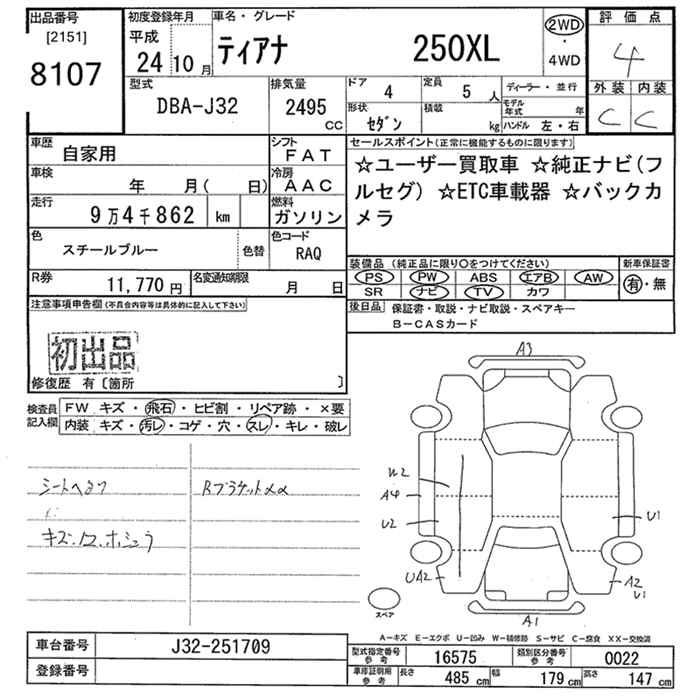 出品番号
[2151]
8107
初度登録年月
平成
24 10 月
車名・グレード
ティアナ 250XL
2WD
・
4WD
評価点
4
外装 内装
C C
型式
DBA-J32
排気量
2495
CC
ドア
4
定員
5 人
ディーラー・並行
形状
セダン
積載
kg
モデル年式 年
ハンドル 左・右
車歴
自家用
シフト
FAT
車検
年 月( 日)
冷房
AAC
走行
9万4千862 km
燃料
ガソリン
色
スチールブルー
色替
色コード
RAQ
R券
11,770 円
名変通知期限
月 日
セールスポイント(正常に機能するものに限ります)
☆ユーザー買取車 ☆純正ナビ(フ
ルセグ) ☆ETC車載器 ☆バックカ
メラ
装備品 (純正品に限り〇をつけてください)
新車保証書
PS PW ABS エアB AW
SR ナビ TV カワ
有・無
後日品
保証書・取説・ナビ取説・スペアキー
B-CASカード
注意事項申告欄(不具合内容等は具体的に記入して下さい)
初出品
修復歴 有〔箇所 〕
検査員
記入欄
FW キズ・飛石・ヒビ割・リペア跡・×要
内装 キズ・汚レ・コゲ・穴・スレ・キレ・破レ
A3
W2
A4
U2
UA2
U1
A2
U1
A1
スペア
A-キズ E-エクボ U-凹み W-補修跡 S-サビ C-腐食 XX-交換済
車台番号
J32-251709
登録番号
型式指定番号
参考
16575
類別区分番号
参考
0022
車庫証明用
参考
長さ
485 cm
幅
179 cm
高さ
147 cm